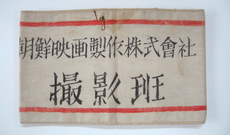 朝鮮映画製作株式會社
撮影班